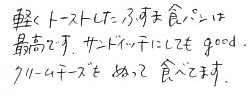 軽くトーストしたふすま食パンは
最高です. サンドイッチにしても good.
クリームチーズも ぬって 食べてます.